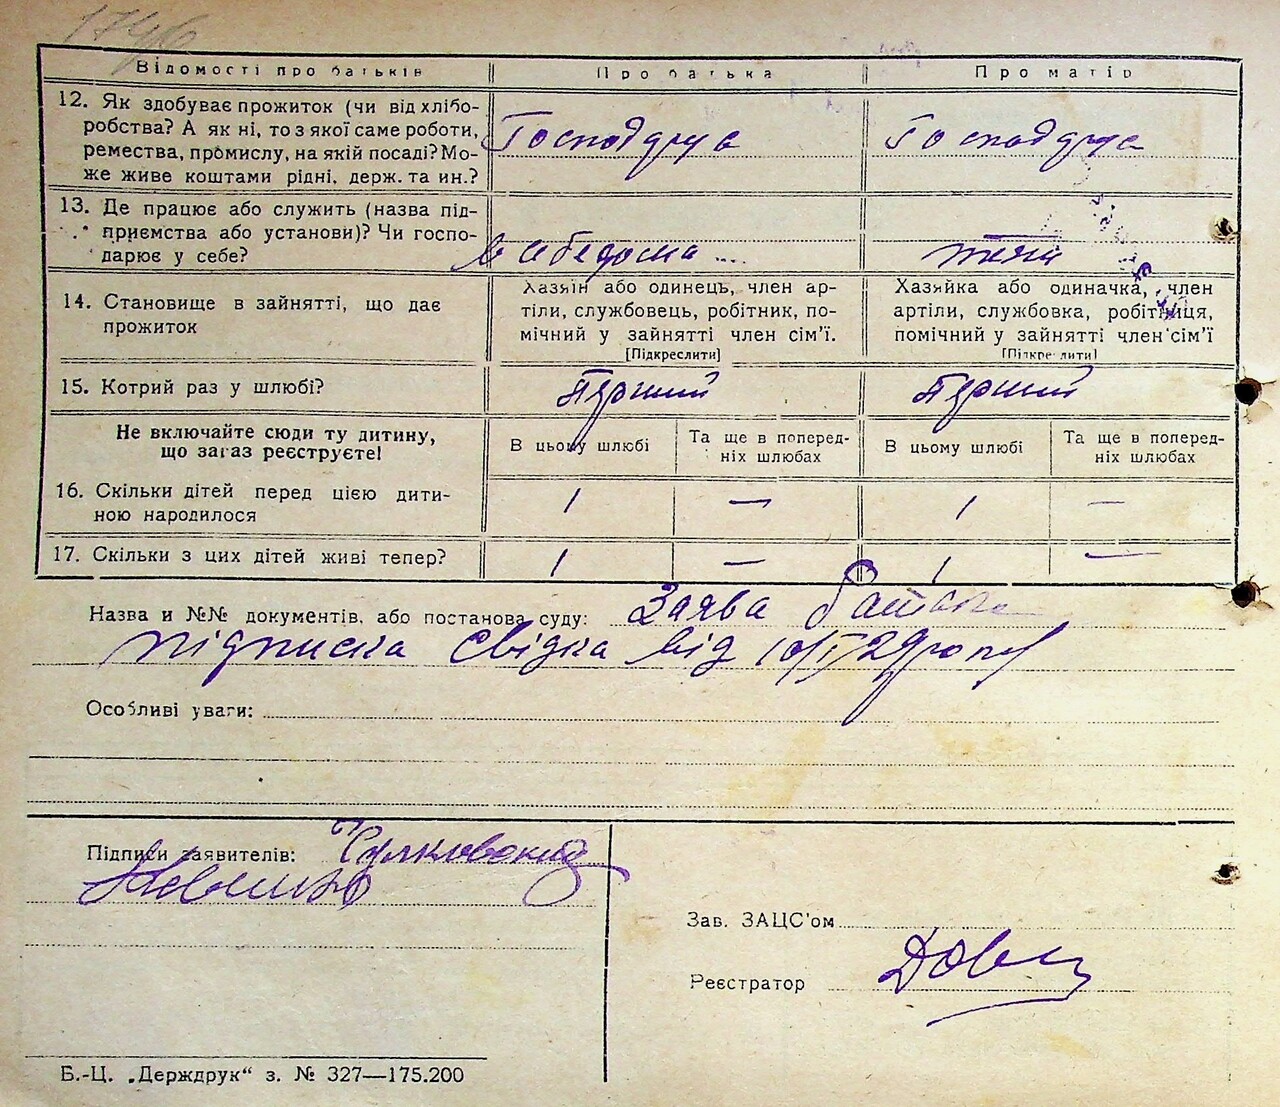 1746
Відомості про батьків Про батька Про матір
12. Як здобуває прожиток (чи від хлібо-
робства? А як ні, то з якої саме роботи,
ремества, промислу, на якій посаді? Мо-
же живе коштами рідні, держ. та ин.?
Господарує Господарує
13. Де працює або служить (назва під-
приємства або установи)? Чи госпо-
дарює у себе?
в себе дома теж
14. Становище в зайнятті, що дає
прожиток
Хазяїн або одинець, член ар-
тілі, службовець, робітник, по-
мічний у зайнятті член сім'ї.
[Підкреслити]
Хазяйка або одиначка, член
артілі, службовка, робітниця,
помічний у зайнятті член сім'ї
[Підкреслити]
15. Котрий раз у шлюбі? Перший Перший
Не включайте сюди ту дитину,
що зараз реєструєте!
В цьому шлюбі Та ще в поперед-
ніх шлюбах В цьому шлюбі Та ще в поперед-
ніх шлюбах
16. Скільки дітей перед цією дити-
ною народилося
1 — 1 —
17. Скільки з цих дітей живі тепер? 1 — 1 —
Назва и №№ документів, або постанова суду: Заява батька
підписка свідка від 10/I 29 року
Особливі уваги:
Підписи заявителів:
Зав. ЗАЦС'ом
Реєстратор
Б.-Ц. „Держдрук“ з. № 327—175.200